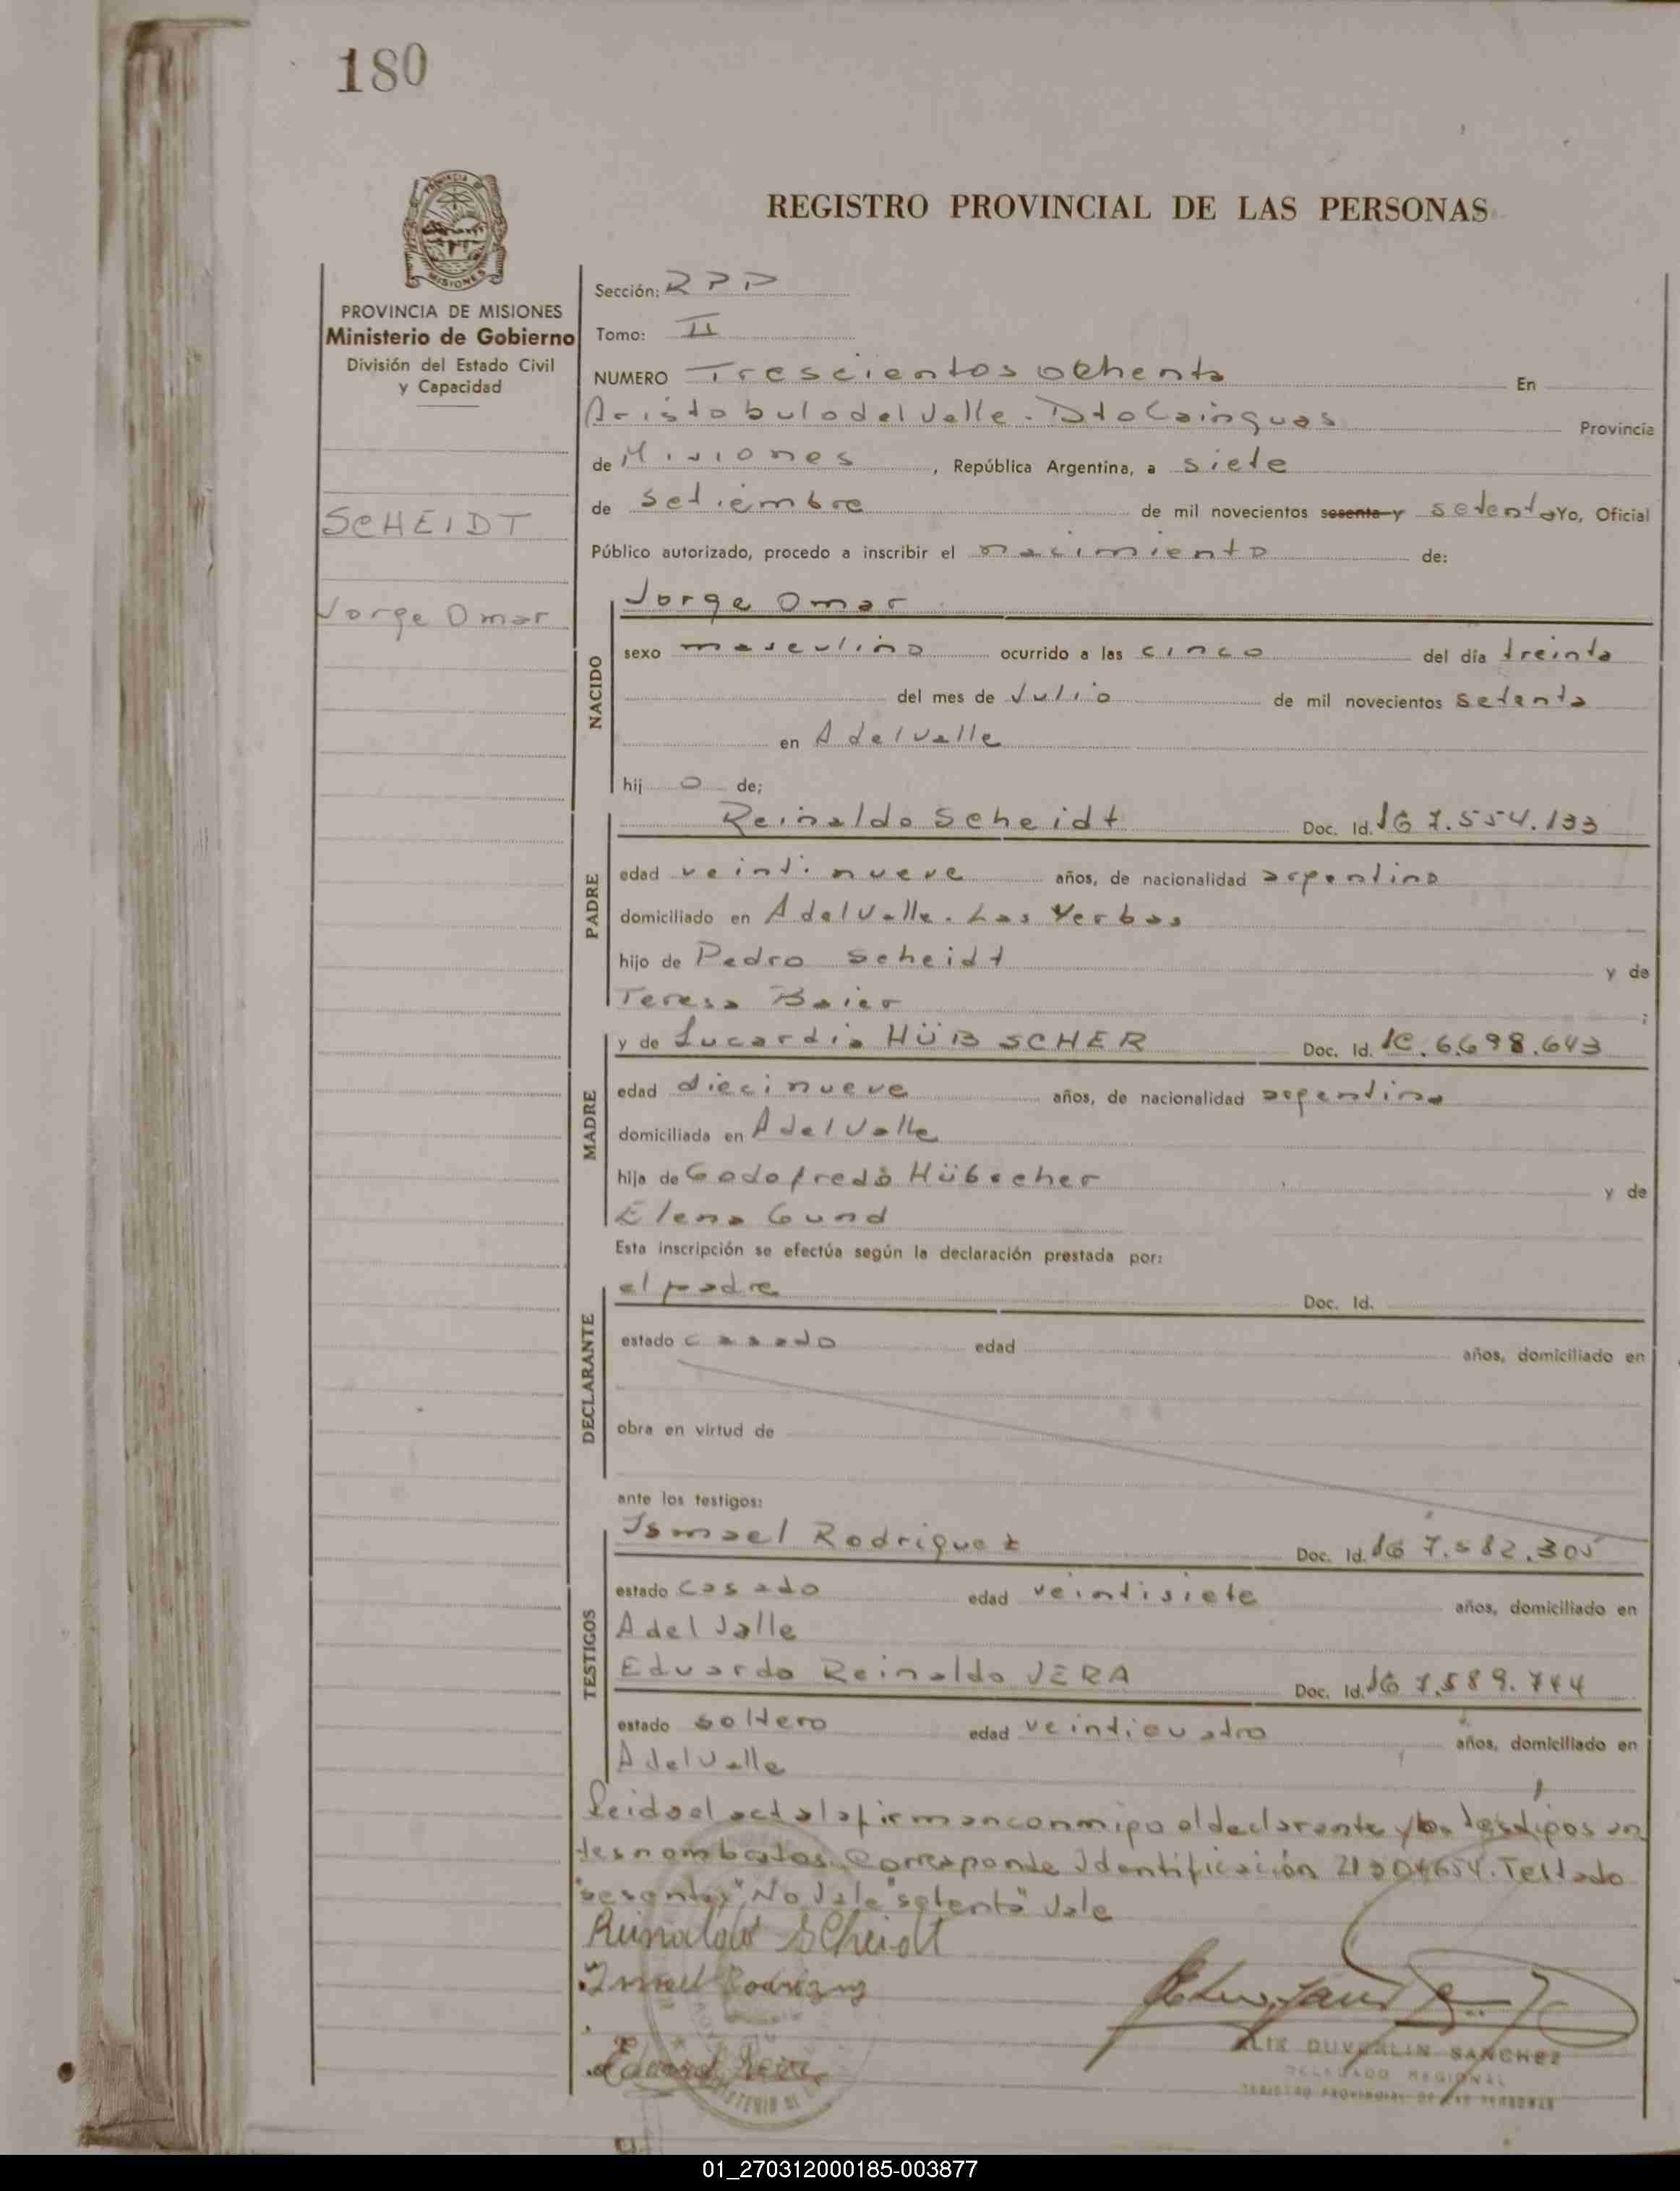 180
PROVINCIA DE MISIONES
Ministerio de Gobierno
División del Estado Civil
y Capacidad
SCHEIDT
Jorge Omar
REGISTRO PROVINCIAL DE LAS PERSONAS
Sección: RPP
Tomo: II
NUMERO Trescientos ochenta En
Aristobulo del Valle. Dto Cainguas Provincia
de Misiones, República Argentina, a siete
de setiembre de mil novecientos sesenta y setenta Yo, Oficial
Público autorizado, procedo a inscribir el nacimiento de:
NACIDO
Jorge Omar
sexo masculino ocurrido a las cinco del día treinta
del mes de Julio de mil novecientos setenta
en A del Valle
hij o de;
PADRE
Reinaldo Scheidt Doc. Id. IG 7.554.133
edad veintinueve años, de nacionalidad argentino
domiciliado en A del Valle. Las Yerbas
hijo de Pedro Scheidt y de
Teresa Baier ;
MADRE
y de Lucardia HÜBSCHER Doc. Id. IC. 6.698.643
edad diecinueve años, de nacionalidad argentina
domiciliada en A del Valle
hija de Godofredo Hübscher y de
Elena Gund
Esta inscripción se efectúa según la declaración prestada por:
DECLARANTE
el padre Doc. Id.
estado casado edad años, domiciliado en
obra en virtud de
ante los testigos:
TESTIGOS
Ismael Rodriguez Doc. Id. IG 7.582.305
estado casado edad veintisiete años, domiciliado en
A del Valle
Eduardo Reinaldo VERA Doc. Id. IG 7.589.744
estado soltero edad veinticuatro años, domiciliado en
A del Valle
Leida el acta la firman conmigo el declarante y los testigos an
tes nombrados. Corresponde Identificación 21304654. Testado
"sesenta y" No Vale "setenta" Vale
Reinaldo Scheidt
Ismael Rodriguez
DUVERLIN SANCHEZ
DELEGADO REGIONAL
REGISTRO PROVINCIAL DE LAS PERSONAS
01_270312000185-003877